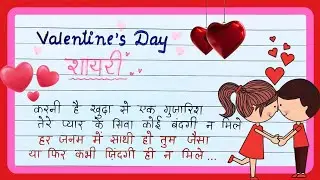 Valentine's Day
शायरी
करनी है खुदा से एक गुजारिश
तेरे प्यार के सिवा कोई बंदगी न मिले
हर जनम में साथी हो तुम जैसा
या फिर कभी ज़िंदगी ही न मिले...